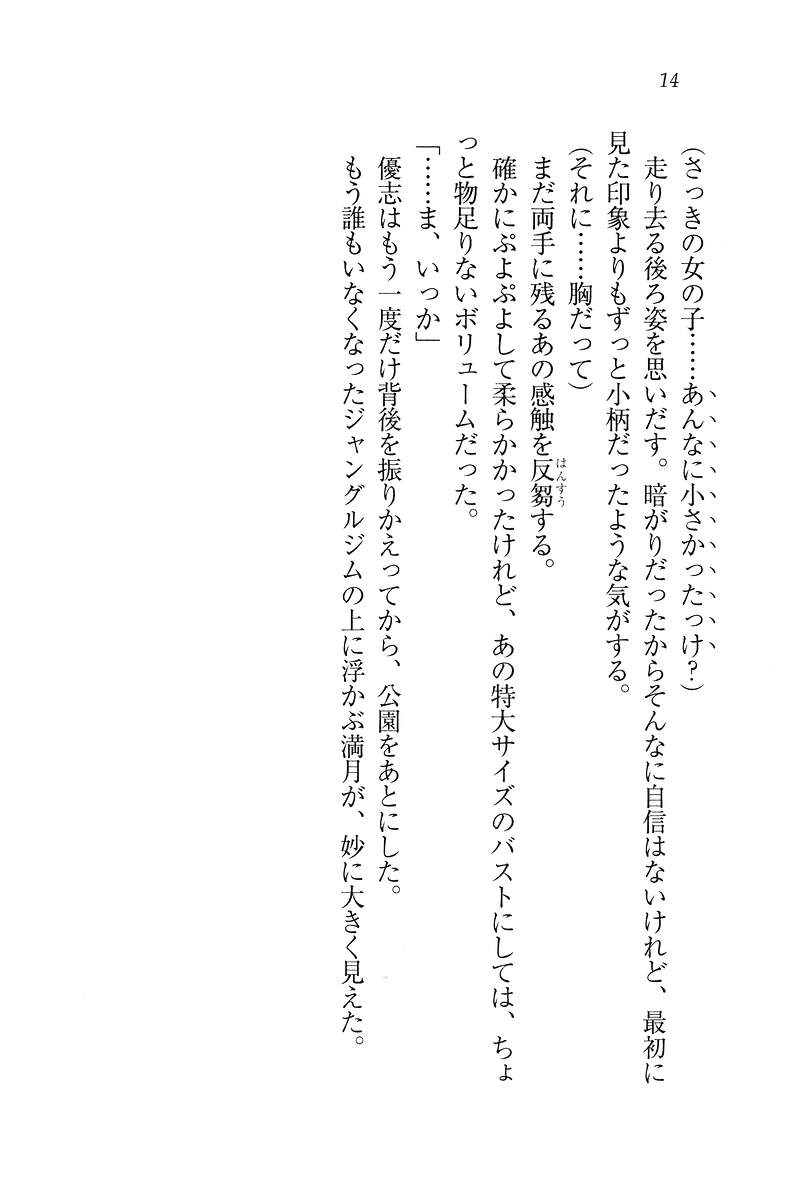 14
(さっきの女の子……あんなに小さかったっけ?)
走り去る後ろ姿を思いだす。暗がりだったからそんなに自信はないけれど、最初に
見た印象よりもずっと小柄だったような気がする。
(それに……胸だって)
まだ両手に残るあの感触を反芻する。
はんすう
確かにぷよぷよして柔らかかったけれど、あの特大サイズのバストにしては、ちょ
っと物足りないボリュームだった。
「……ま、いっか」
優志はもう一度だけ背後を振りかえってから、公園をあとにした。
もう誰もいなくなったジャングルジムの上に浮かぶ満月が、妙に大きく見えた。